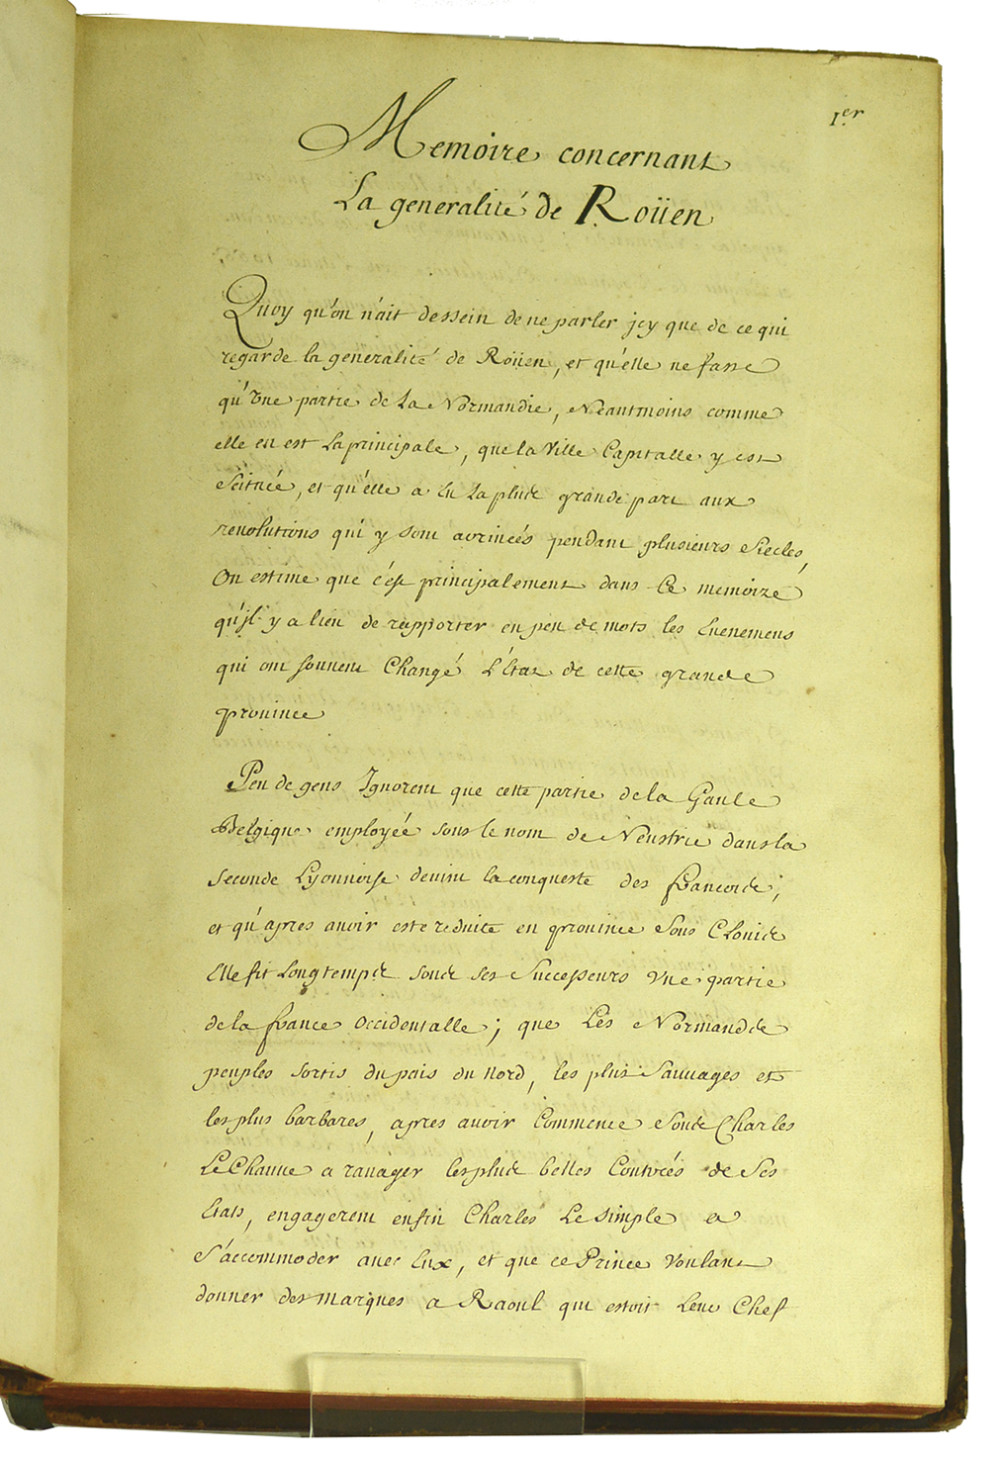 1.er
Memoire concernant
La generalité de Roüen
Quoy qu'on n'ait dessein de ne parler jcy que de ce qui
regarde la generalité de Roüen, et qu'elle ne fasse
qu'vne partie de La Normandie, Neantmoins comme
elle en est La principale, que la Ville Capitalle y est
Scituée, et qu'elle a Eu La plus grande part aux
reuolutions qui y sont arriueés pendant plusieurs Siecles,
On estime que c'est principalement dans Ce memoire
qu'jl y a lieu de rapporter en peu de mots les Euenemens
qui ont souuent Changé L'Estat de cette grande
prouince
Peu de gens Ignorent que cette partie de la Gaule
Belgique employée sous le nom de Neustrie dans la
Seconde Lyonnoise deuint la conqueste des francois;
et qu'apres auoir esté reduite en prouince Sous Clouis
Elle fit Longtemps sous ses Successeurs vne partie
de la france Occidentalle; que Les Normands
peuples sortis du pais du nord, les plus Sauuages et
les plus barbares, apres auoir Commencé Sous Charles
Le Chauue a rauager les plus belles Contreés de Ses
Etats, engagerent enfin Charles Le Simple a
S'accommoder auec Eux, et que ce Prince Voulant
donner des marques a Raoul qui estoit Leur Chef